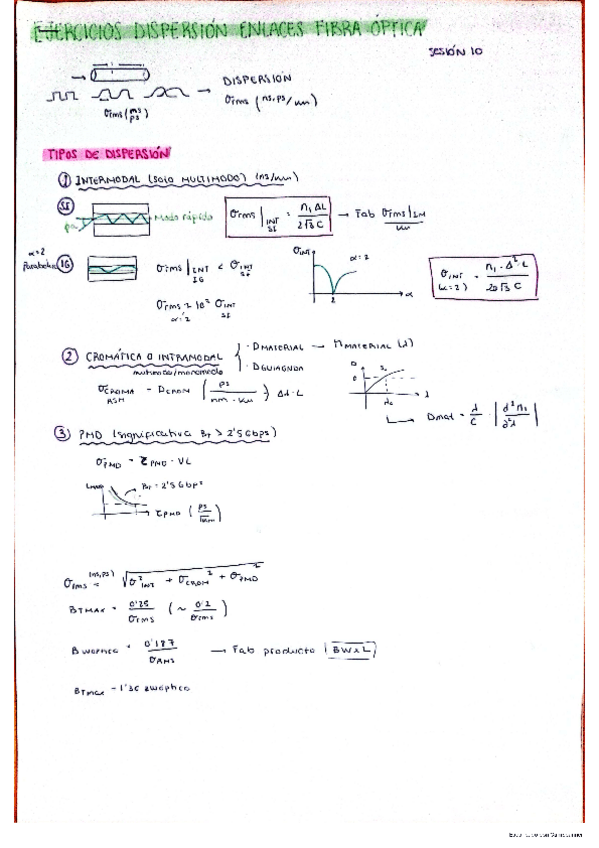 EJERCICIOS DISPERSIÓN ENLACES FIBRA ÓPTICA
SESIÓN 10
DISPERSIÓN
σrms (ns,ps/km)
σrms (ns ps)
TIPOS DE DISPERSIÓN
① INTERMODAL (SOLO MULTIMODO) (ns/km)
SI
Modo rápido
σrms|INT SI = n₁ΔL / 2√3 C → Fab σrms|IM / km
α=2
Parabólico IG
σrms|INT IG < σINT SI
σrms ≈ 10² σINT SI
α=2
σINT
α=2
2
α
σINT (α=2) = n₁·Δ²·L / 20√3 C
② CROMÁTICA O INTRAMODAL
multimodo/monomodo
· DMATERIAL → nMATERIAL (λ)
· DGUIAONDA
σCROMA = DCROM (ps / nm·km) Δλ·L
D
0
λ
λ₀
Dmat = λ/C · |d²n₁ / d²λ|
③ PMD (significativa BT > 2'5 Gbps)
σPMD = ζPMD · √L
BT = 2'5 Gbps
ζPMD (ps/√km)
σrms (ns,ps) = √σ²INT + σCROM² + σPMD²
BTMAX = 0'25/σrms (~ 0'2/σrms)
BWóptica = 0'187/σRMS → Fab producto |BWxL|
BTmax = 1'3